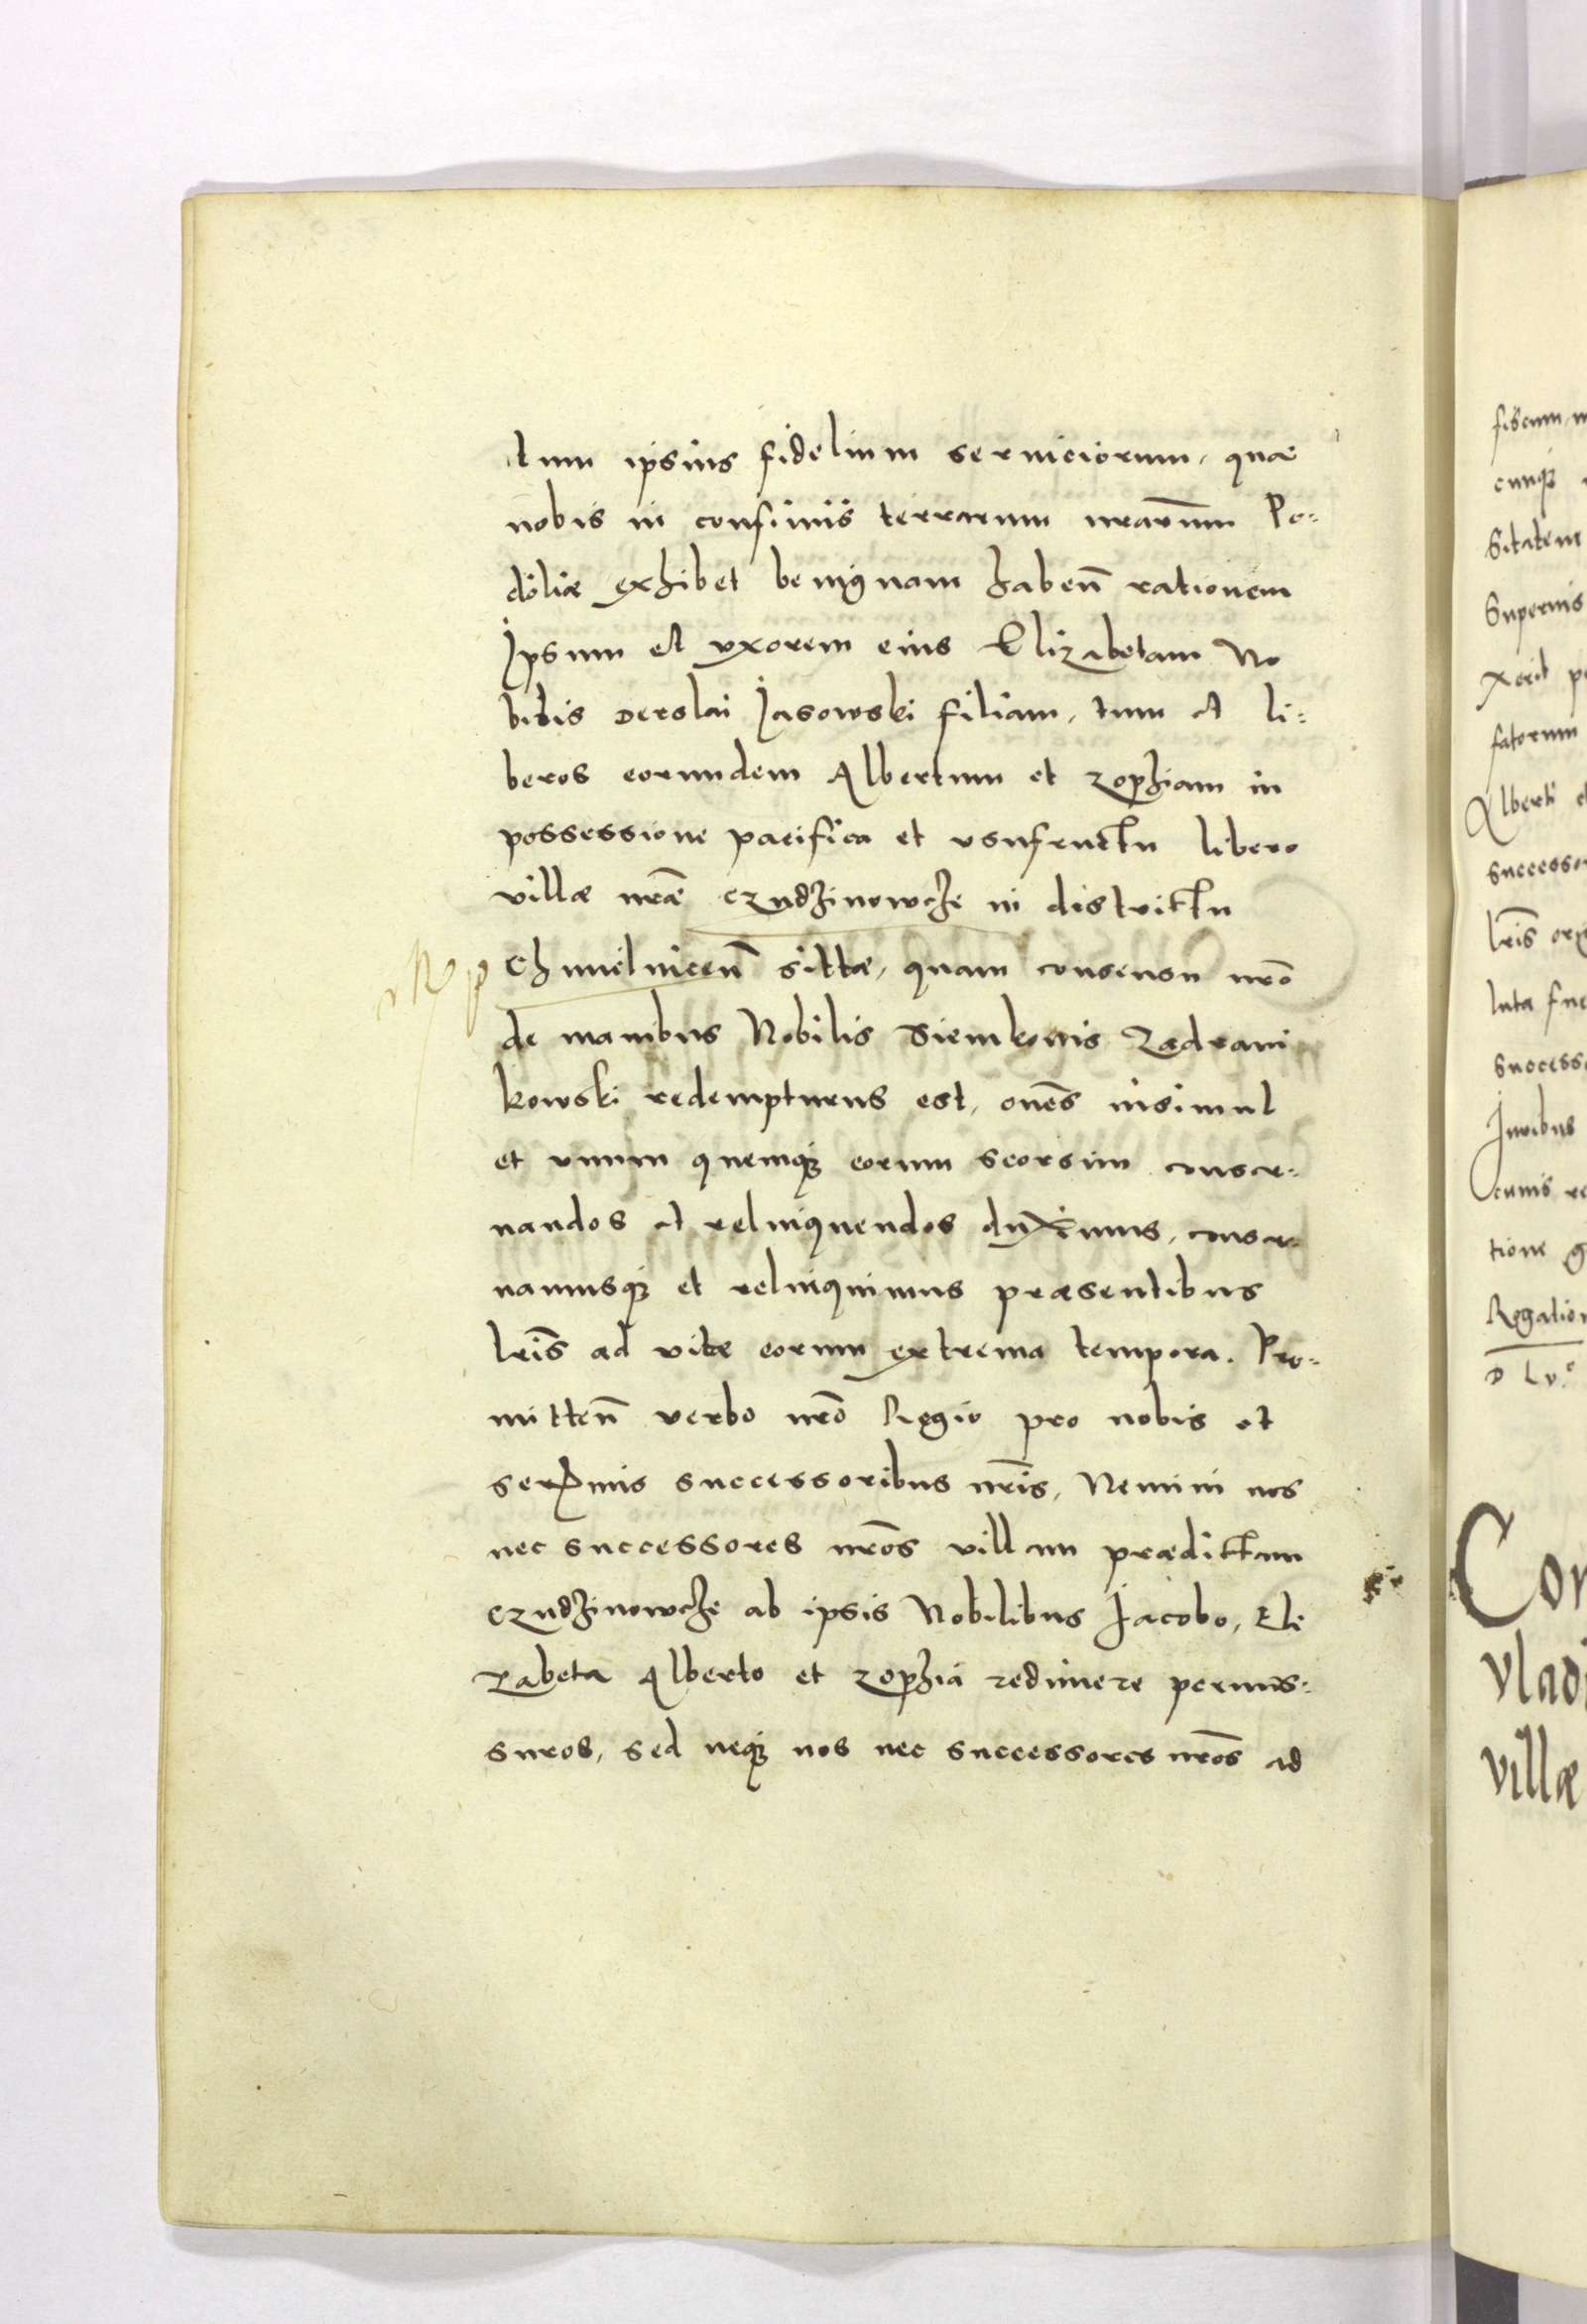 tum ipsius fidelium seruiciorum, quæ
nobis in confinijs terrarum nrãrum Po:
doliæ exhibet benignam habeñ rationem
Ipsum et vxorem eius Elizabetam No
bilis Derslai Jasowski filiam, tum et li:
beros eorundem Albertum et Zophiam in
possessione pacifica et vsufructu libero
villæ nrãe Czudzinowcze in districtu
Chmielniceñ sittæ, quam consensu nrõ
de manibus Nobilis Siemkonis Zadrani
kowski redempturus est, oñes insimul
et vnum quemq₃ eorum seorsim conser:
uandos et relinquendos duximus, conser:
uamusq₃ et relinquimus præsentibus
lrĩs ad vitæ eorum extrema tempora. Pro:
mitteñ verbo nrõ Regio pro nobis et
serẽmis successoribus nrĩs, Nemini nos
nec successores nrõs villam prædictam
Czudzinowcze ab ipsis Nobilibus Jacobo, Eli
zabeta Alberto et Zophia redimere permis:
suros, sed neq₃ nos nec successores nrõs ad
fiscum
cunq₃
Sitatem
Supernis
xerit
fatorum
Alberti
successo
lrĩs
luta
success
Juribus
cunis
tione
Regatio
D Lv.
Con
vladi
villæ